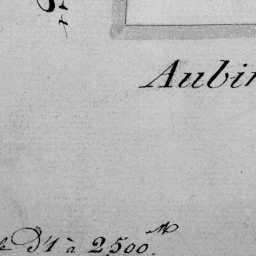 Aubin
D'1 à 2500.M